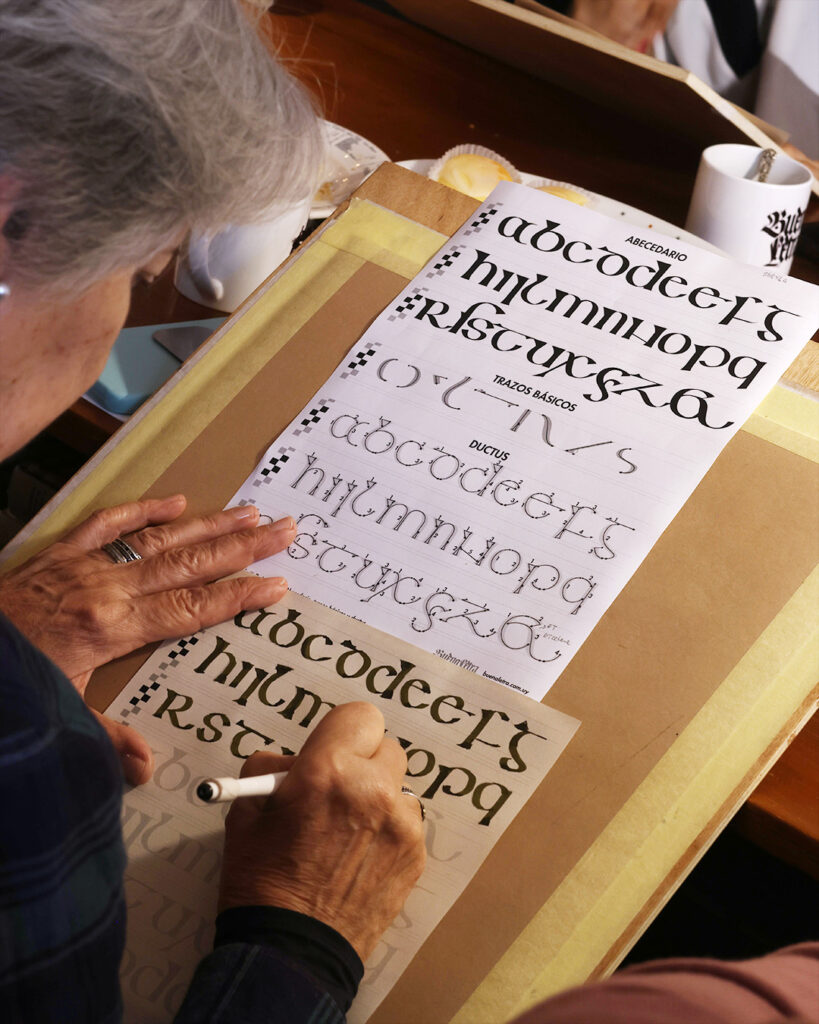 ABECEDARIO
abcddeefg
hijlmnnopq
rsstuxyza
TRAZOS BÁSICOS
DUCTUS
abcddeefg
hijlmnnopq
stuxyza
BuenaLetra
buenaletra.com.uy
abcddeefg
hijlm opq
rstu